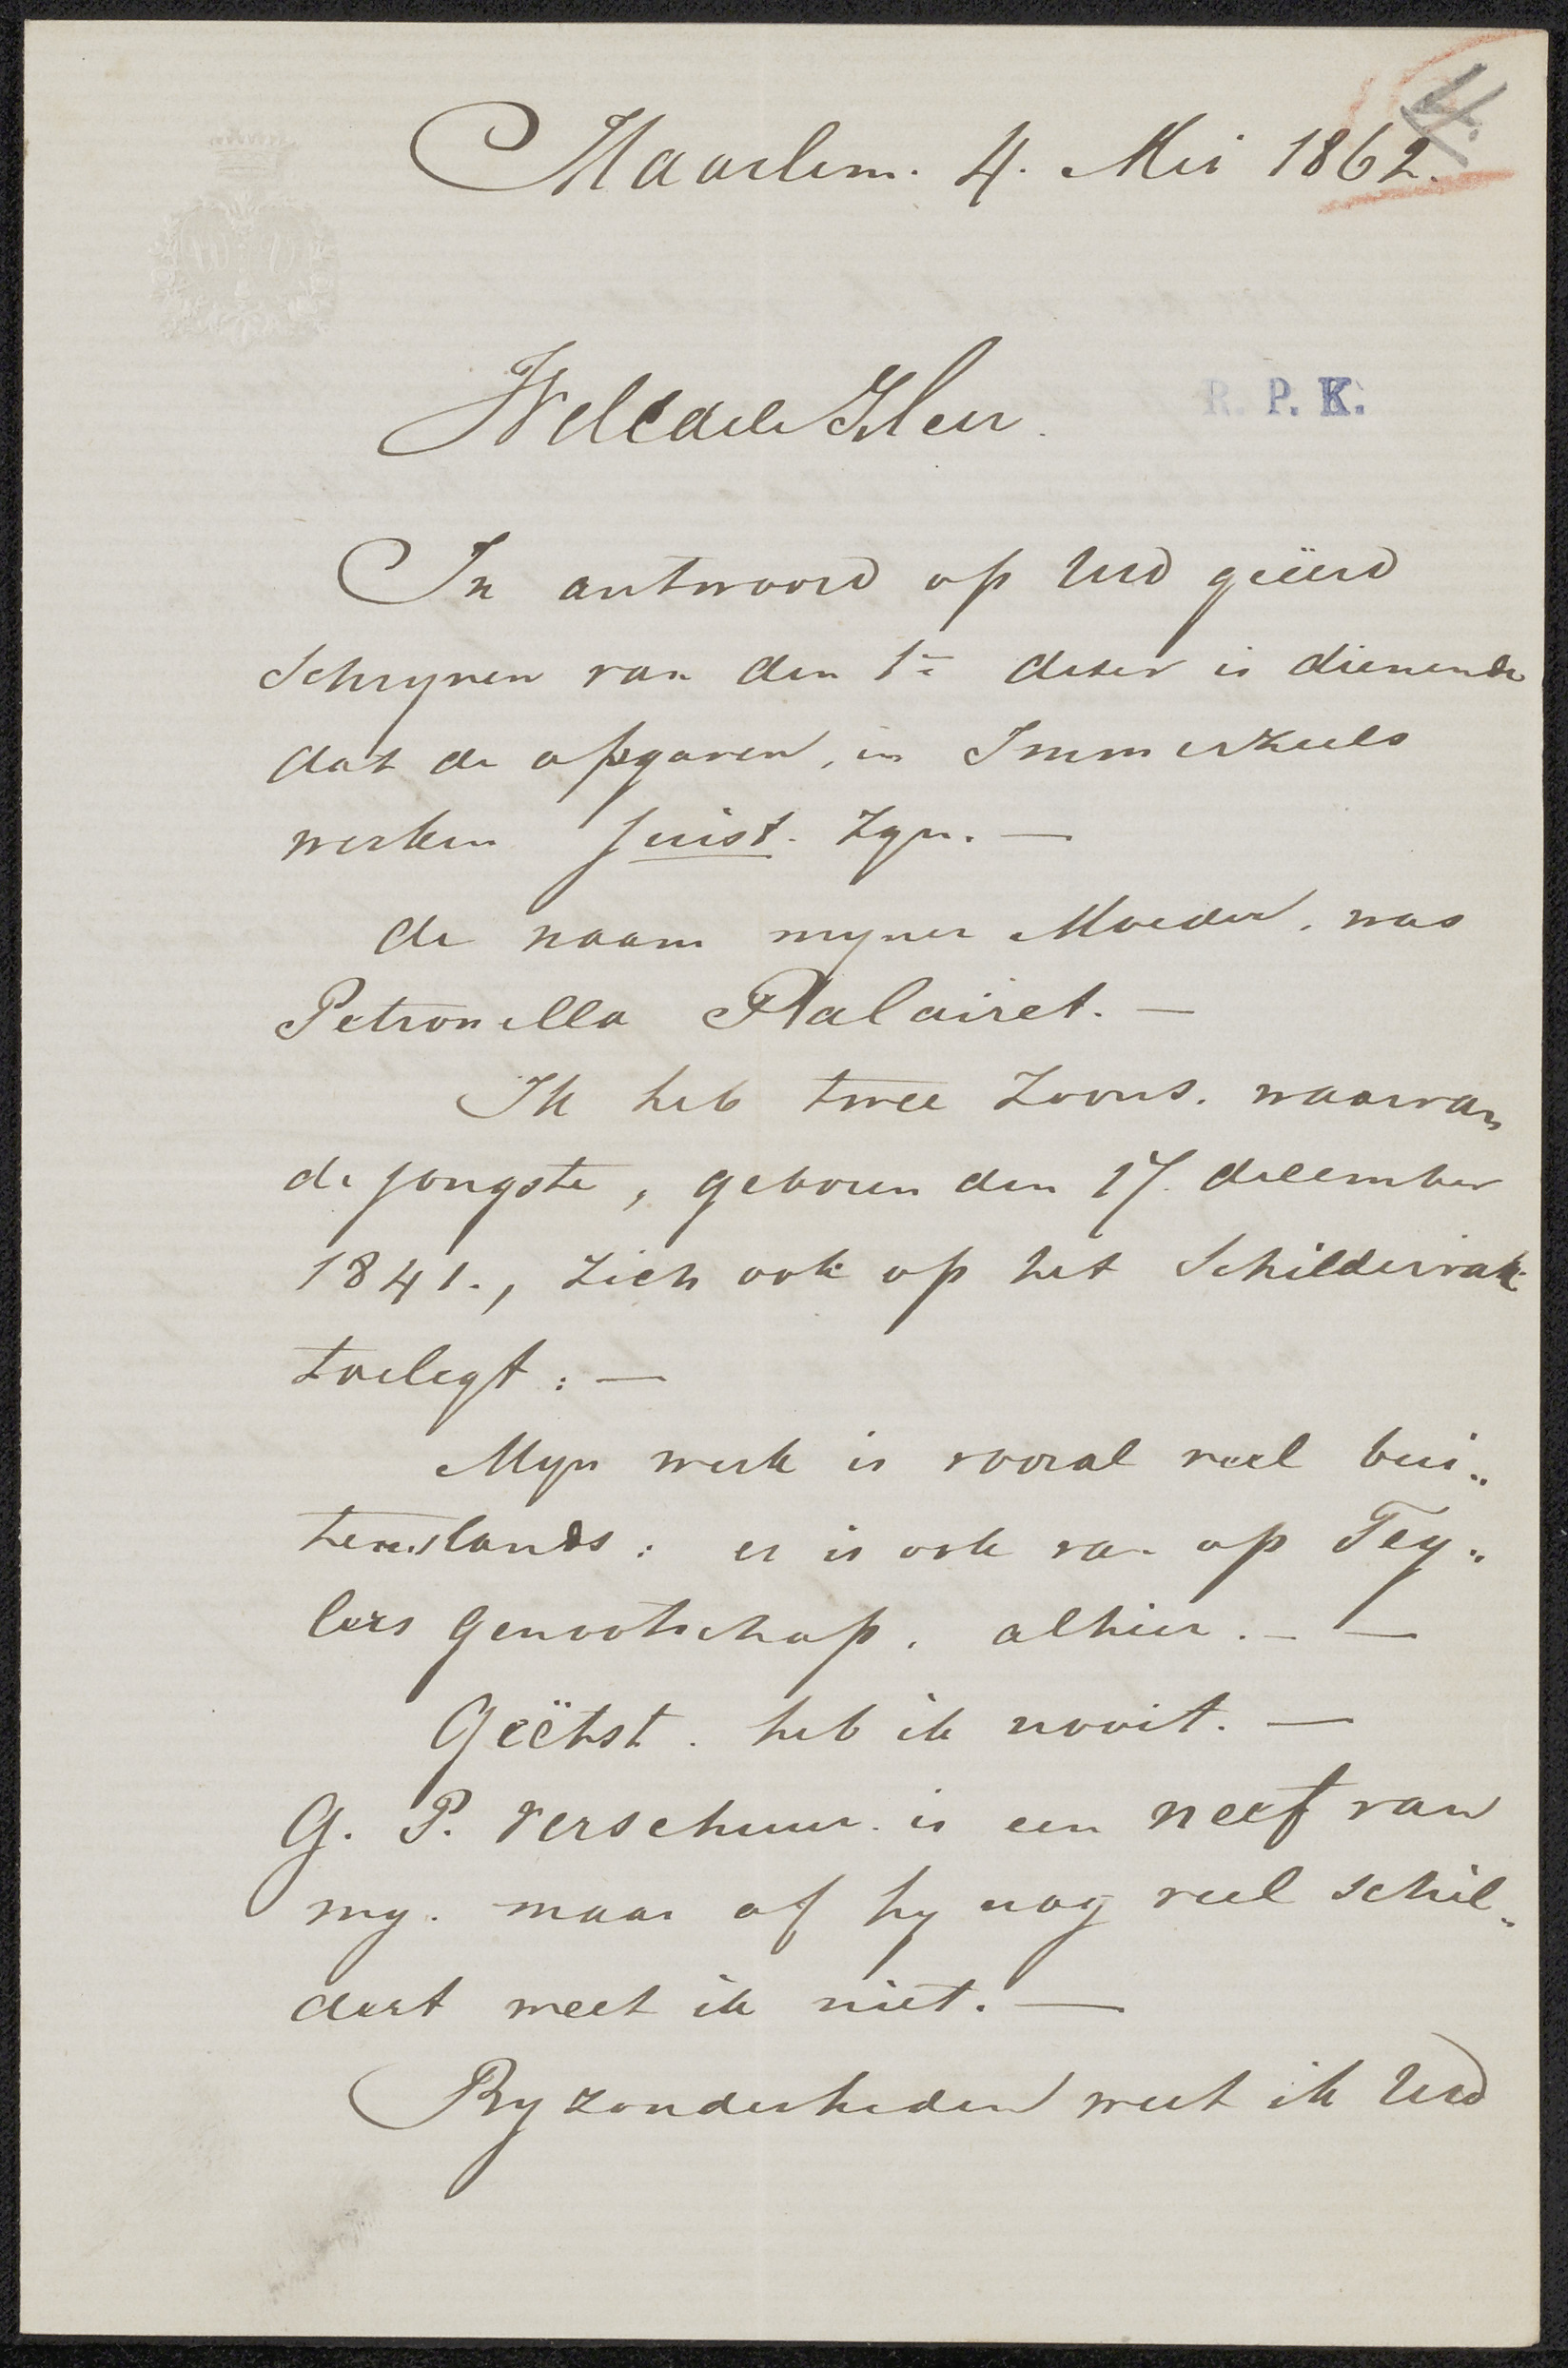 4.
Haarlem. 4. Mei 1862.
W V
WelEdele Heer.
R. P. K.
In antwoord op UEd geëerd
Schryven van den 1e deser is dienende
dat de opgaven, in Immerzeels
werken juist. zyn. —
de naam myner Moeder, was
Petronella Palairet. —
Ik heb twee Zoons. waarvan
de jongste, geboren den 17. december
1841., zich ook op het Schildervak
toelegt: —
Myn werk is vooral veel bui„
tenslands: er is ook van op Tey„
lers Genootschap. alhier. — —
Geëtst. heb ik nooit. —
G. P. Verschuur. is een neef van
my. maar of hy nog veel schil„
dert weet ik niet. —
Byzonderheden weet ik UEd